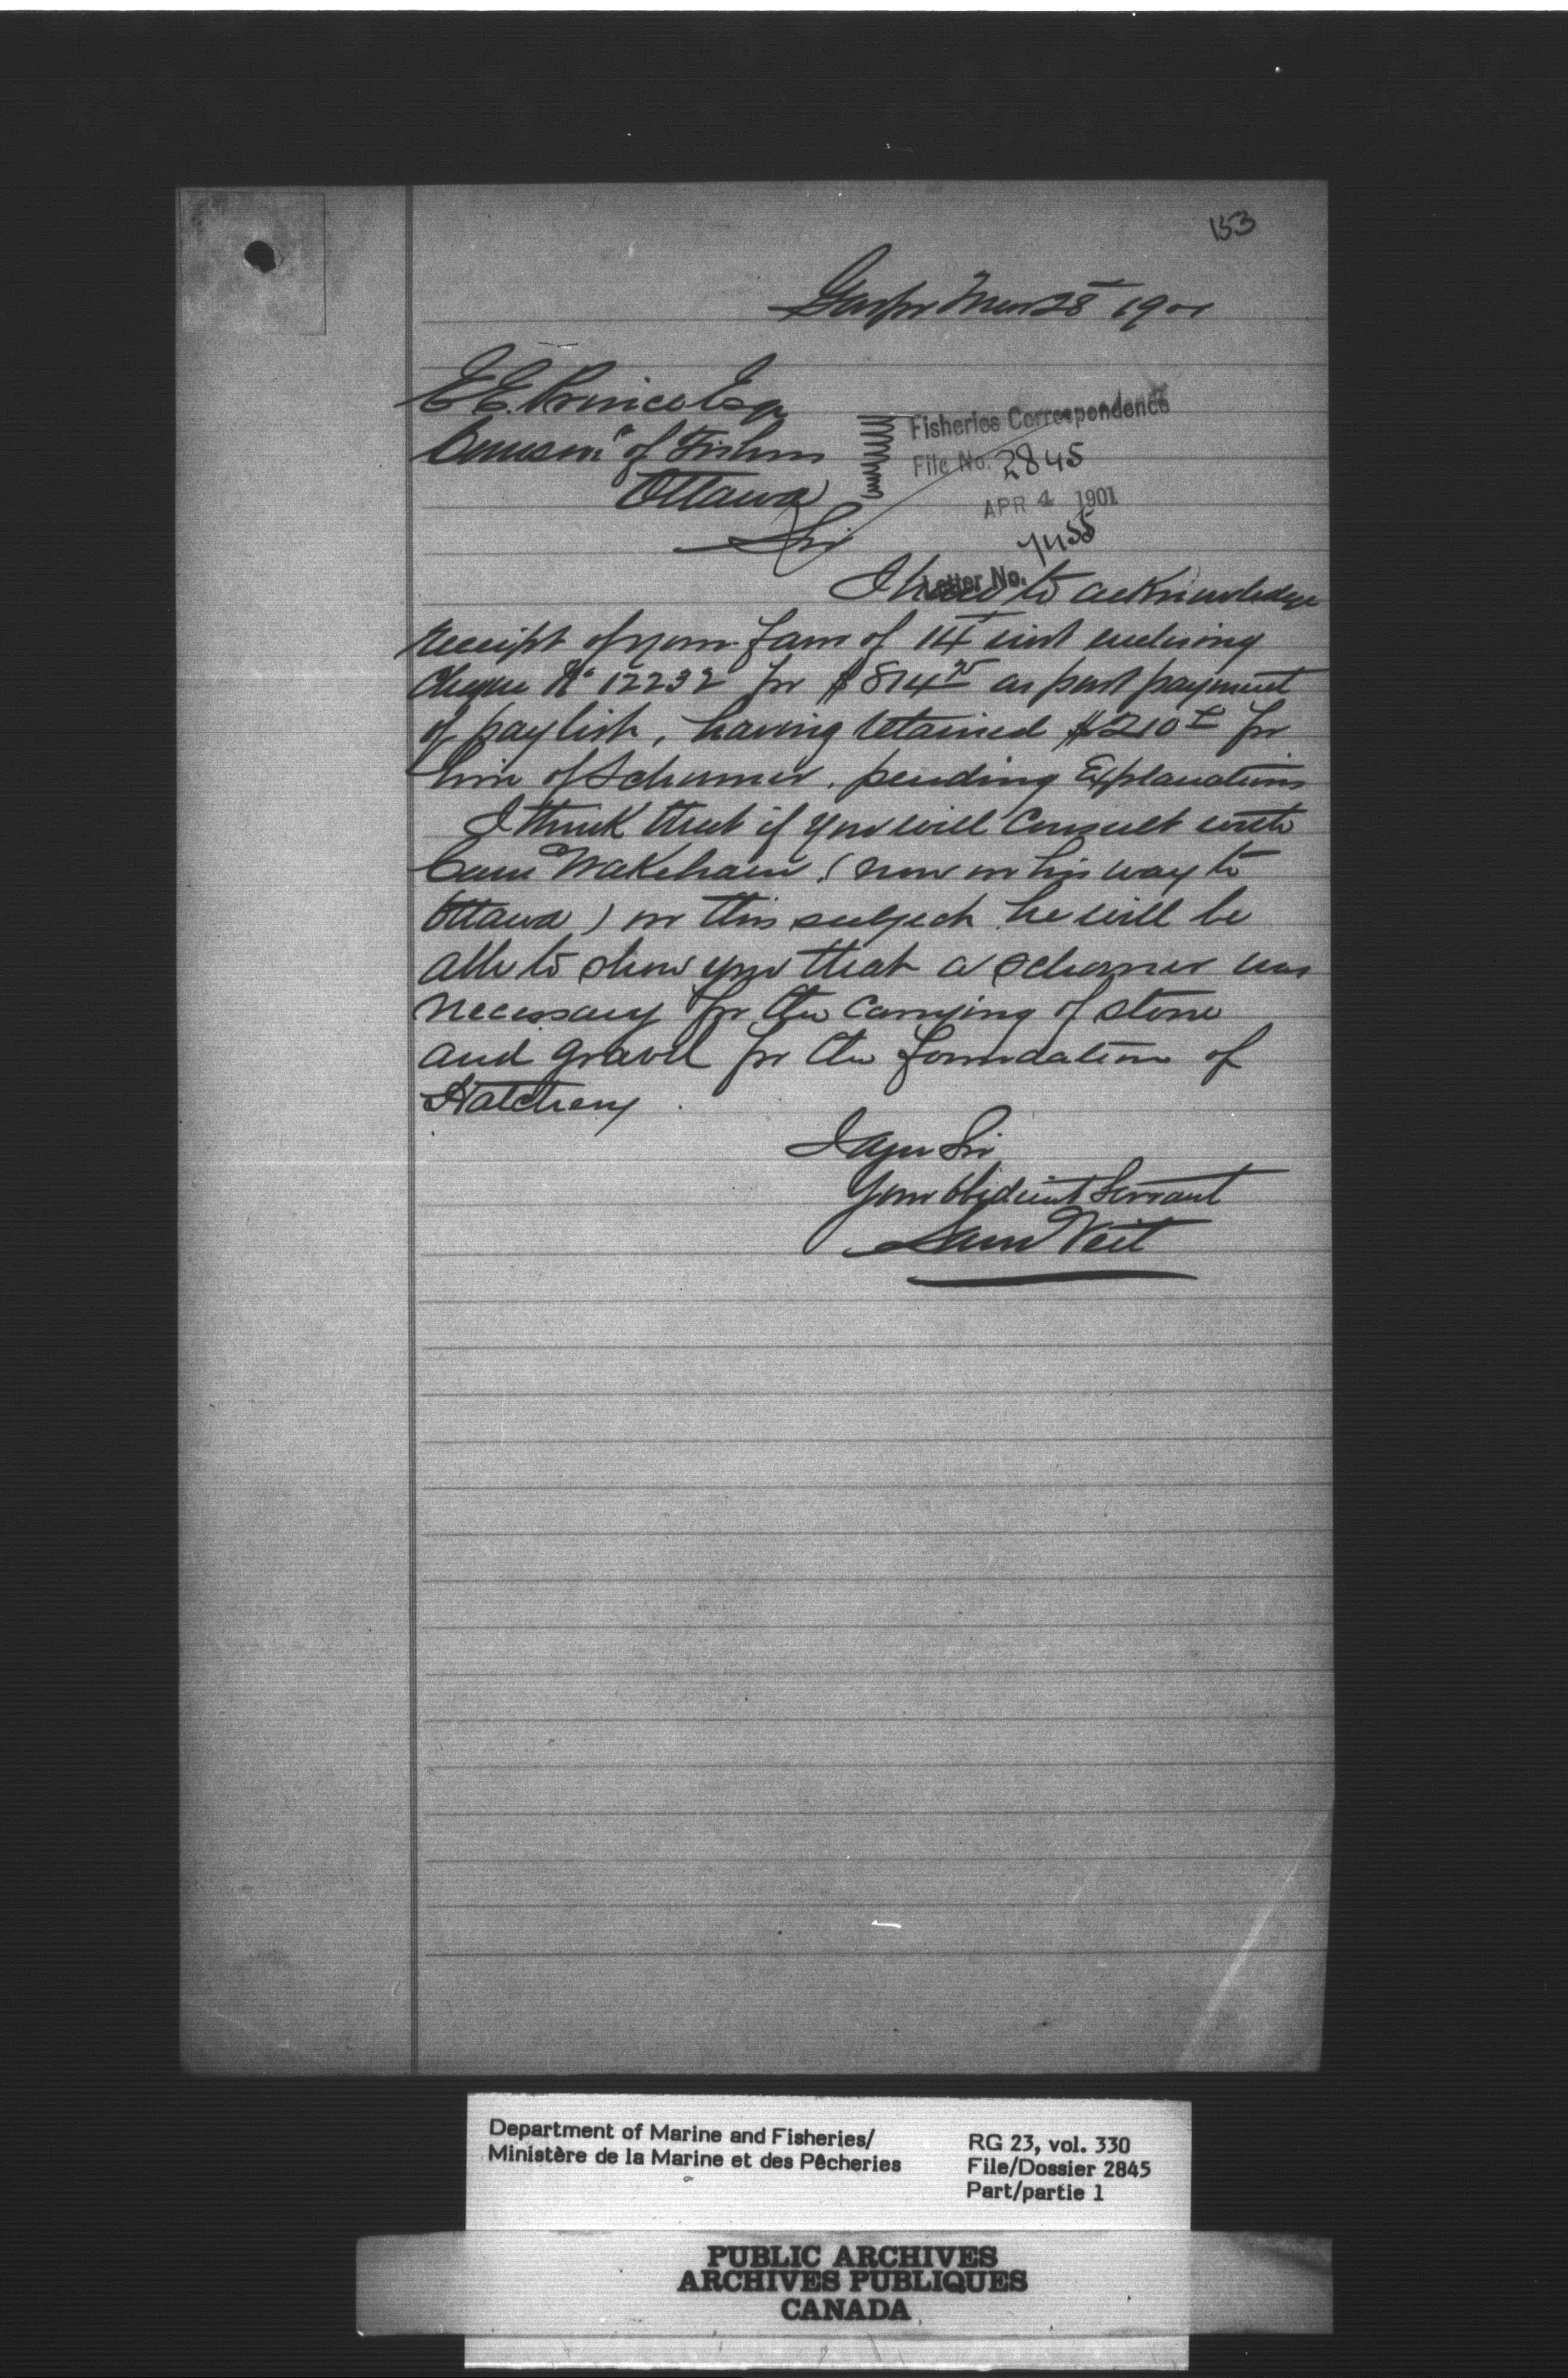 153
Gaspe Mar 28 1901
E.E. Prince Esq
of Fishrs
Ottawa
Sir
Fisheries Correspondence
File No. 2845
APR 4 1901
7455
Letter No.
I have to acknowledge
receipt of your favr of 14 inst enclosing
Cheque No 12232 for $814 as part payment
of pay list, having retained $210 for
hire of Schooner, pending Explanations
I think that if you will Consult with
Com Wakeham (now on his way to
Ottawa) on this subject he will be
able to show you that a schooner was
necessary for the carrying of stone
and gravel for the foundation of
Hatchery.
I am Sir
Your Obedient Servant
Sam Veit
Department of Marine and Fisheries/
Ministère de la Marine et des Pêcheries
RG 23, vol. 330
File/Dossier 2845
Part/partie 1
PUBLIC ARCHIVES
ARCHIVES PUBLIQUES
CANADA